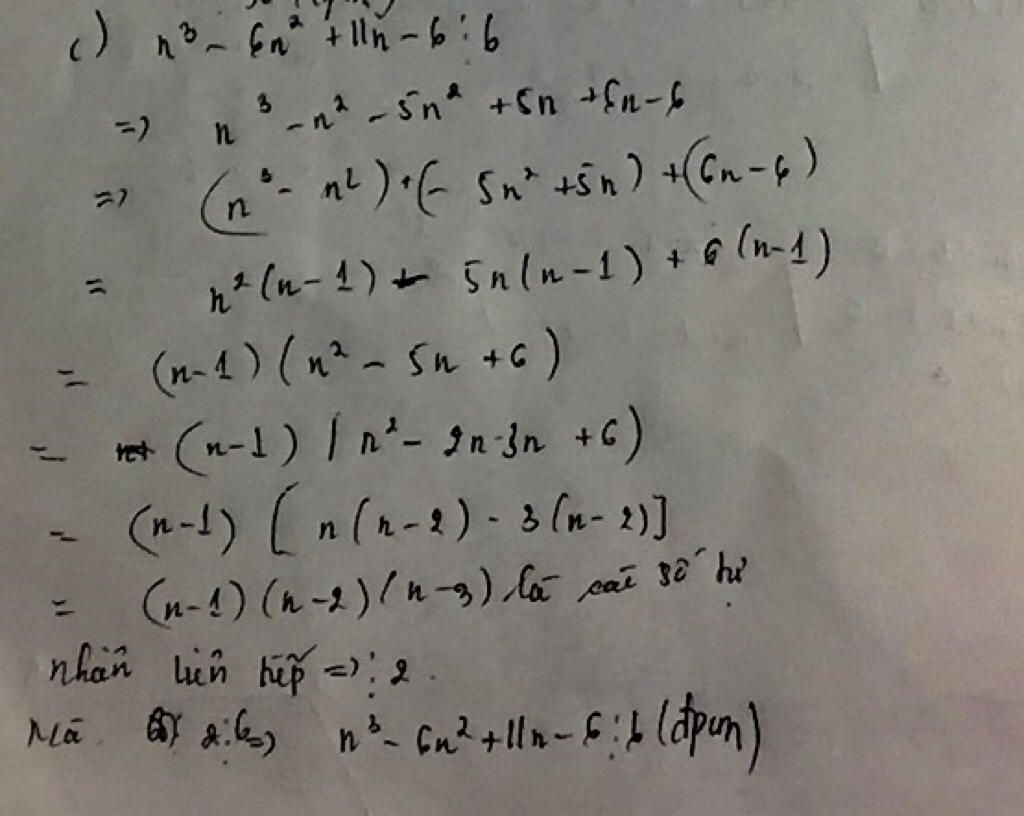 c) n³ - 6n² + 11n - 6 ⋮ 6
=> n³ - n² - 5n² + 5n + 6n - 6
=> (n³ - n²) + (- 5n² + 5n) + (6n - 6)
= n²(n - 1) - 5n(n - 1) + 6(n - 1)
= (n - 1)(n² - 5n + 6)
= (n - 1)(n² - 2n - 3n + 6)
= (n - 1)[n(n - 2) - 3(n - 2)]
= (n - 1)(n - 2)(n - 3) là các số tự
nhân liên tiếp => ⋮ 2.
Mà 2 ⋮ 6 => n³ - 6n² + 11n - 6 ⋮ 6 (đpcm)